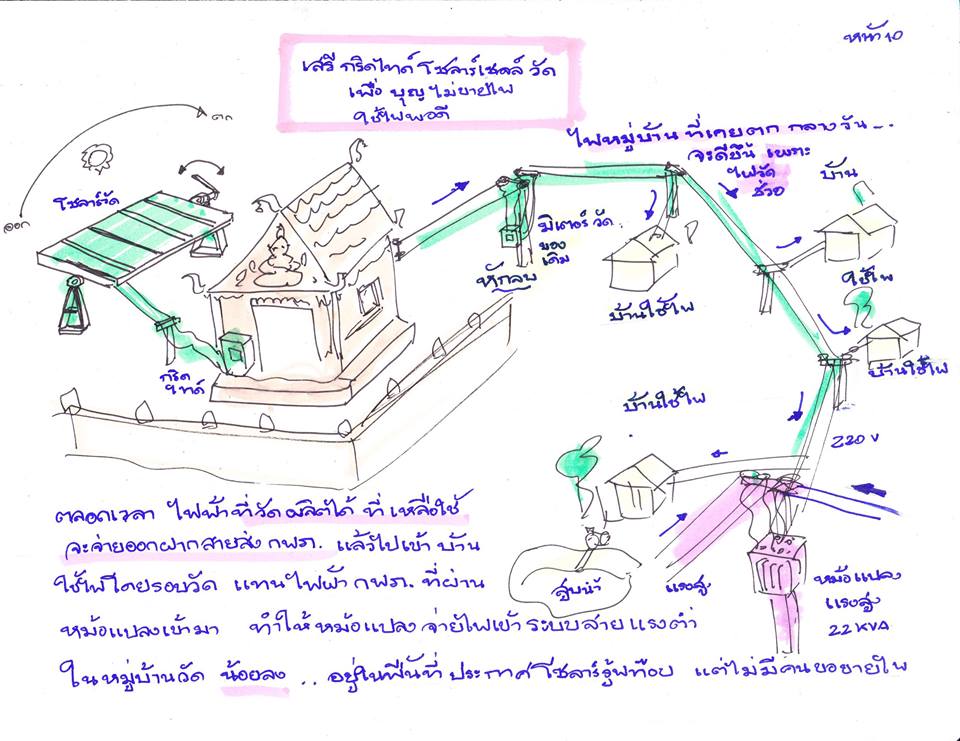 หน้า 10
เสรี กริดไทด์ โซลาร์เซลล์ วัด
เพื่อ บุญ ไม่ขายไฟ
ใช้ไฟพอดี
ไฟหมู่บ้าน ที่เคยตก กลางวัน ...
จะดีขึ้น เพราะ
ไฟวัด
ช่วย
ตก
ออก
โซลาร์วัด
กริด
ไทด์
มิเตอร์ วัด
ของ
เดิม
หักลบ
บ้าน
ใช้ไฟ
บ้านใช้ไฟ
บ้านใช้ไฟ
บ้านใช้ไฟ
220 V
สูบน้ำ
แรงสูง
หม้อแปลง
แรงสูง
22 KVA
ตลอดเวลา ไฟฟ้าที่วัดผลิตได้ ที่เหลือใช้
จะจ่ายออกฝากสายส่ง กฟภ. แล้วไปเข้า บ้าน
ใช้ไฟโดยรอบวัด แทนไฟฟ้า กฟภ. ที่ผ่าน
หม้อแปลงเข้ามา ทำให้ หม้อแปลง จ่ายไฟเข้า ระบบสายแรงต่ำ
ในหมู่บ้านวัด น้อยลง .. อยู่ในพื้นที่ ประกาศ โซลาร์รู้ฟท๊อบ แต่ไม่มีคนขอขายไฟ